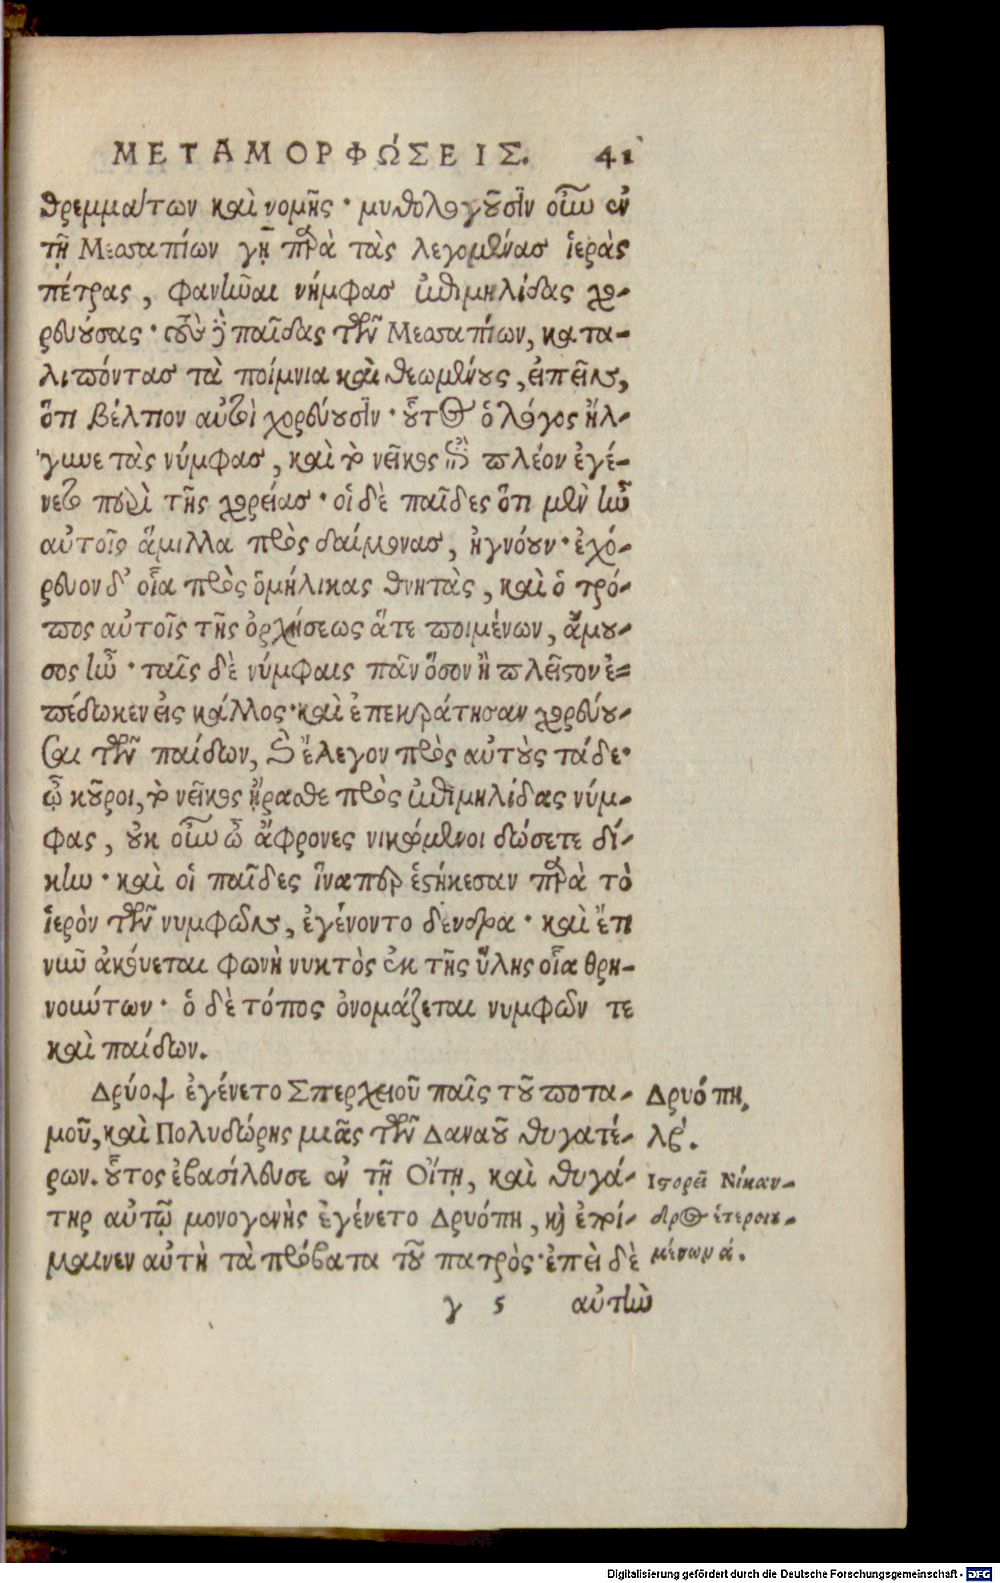 ΜΕΤΑΜΟΡΦΏΣΕΙΣ. 41
θρεμμάτων καὶ νομῆς· μυθολογοῦσιν οὖν ἐν
τῇ Μεσσαπίων γῇ παρὰ τὰς λεγομένας ἱερὰς
πέτρας, φανῆναι νύμφας ἐπιμηλίδας χο-
ρευούσας· τοὺς δὲ παῖδας τῶν Μεσσαπίων, κατα-
λιπόντας τὰ ποίμνια καὶ θεωμένους, εἰπεῖν,
ὅτι βέλτιον αὐτοὶ χορεύουσιν· οὗτος ὁ λόγος ἤλ-
γυνε τὰς νύμφας, καὶ τὸ νεῖκος ἐπὶ πλέον ἐγέ-
νετο περὶ τῆς χορείας· οἱ δὲ παῖδες ὅτι μὲν ἦν
αὐτοῖς ἅμιλλα πρὸς δαίμονας, ἠγνόουν· ἐχό-
ρευον δ' οἷα πρὸς ὁμήλικας θνητὰς, καὶ ὁ τρό-
πος αὐτοῖς τῆς ὀρχήσεως ἅτε ποιμένων, ἄμου-
σος ἦν· ταῖς δὲ νύμφαις πᾶν ὅσον ἢ πλεῖστον ἐ-
πέδωκεν εἰς κάλλος· καὶ ἐπεκράτησαν χορεύου-
σαι τῶν παίδων, καὶ ἔλεγον πρὸς αὐτοὺς τάδε·
ὦ κοῦροι, τὸ νεῖκος ἤρασθε πρὸς ἐπιμηλίδας νύμ-
φας, οὐκ οὖν ὦ ἄφρονες νικώμενοι δώσετε δί-
κην· καὶ οἱ παῖδες ἵναπερ ἑστήκεσαν παρὰ τὸ
ἱερὸν τῶν νυμφῶν, ἐγένοντο δένδρα· καὶ ἔτι
νῦν ἀκούεται φωνὴ νυκτὸς ἐκ τῆς ὕλης οἷα θρη-
νούντων· ὁ δὲ τόπος ὀνομάζεται νυμφῶν τε
καὶ παίδων.
Δρύοψ ἐγένετο Σπερχειοῦ παῖς τοῦ ποτα-
μοῦ, καὶ Πολυδώρης μιᾶς τῶν Δαναοῦ θυγατέ-
ρων. οὗτος ἐβασίλευσε ἐν τῇ Οἴτῃ, καὶ θυγά-
τηρ αὐτῷ μονογενὴς ἐγένετο Δρυόπη, καὶ ἐποί-
μαινεν αὐτὴ τὰ πρόβατα τοῦ πατρὸς· ἐπεὶ δὲ
γ 5 αὐτὴν
Δρυόπη,
λβ'.
Ἱστορεῖ Νίκαν-
δρος ἑτεροιου-
μένων ά.
Digitalisierung gefördert durch die Deutsche Forschungsgemeinschaft - DFG